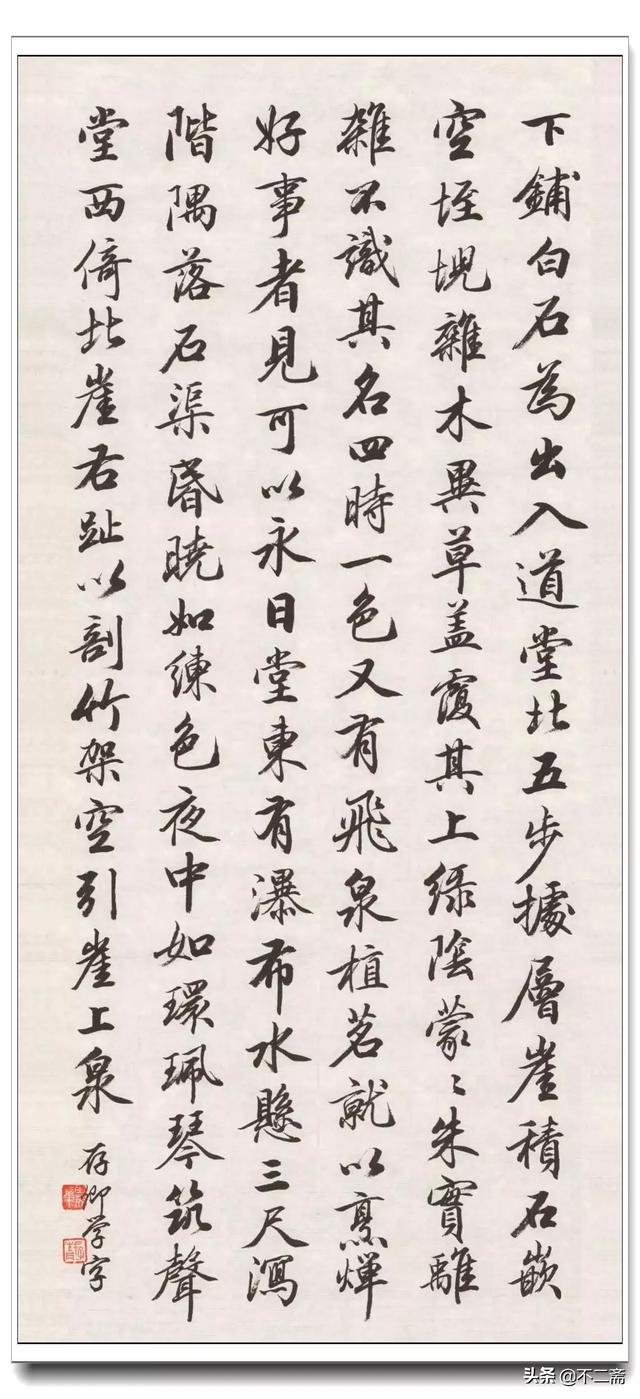 下鋪白石為出入道堂北五步據層崖積石嵌
空垤堄雜木異草盖覆其上綠陰蒙〻朱實離
雜不識其名四時一色又有飛泉植茗就以烹燀
好事者見可以永日堂東有瀑布水懸三尺瀉
階隅落石渠昬曉如練色夜中如環珮琴筑聲
堂西倚北崖右趾以剖竹架空引崖上泉
存卿学字
头条 @不二斋